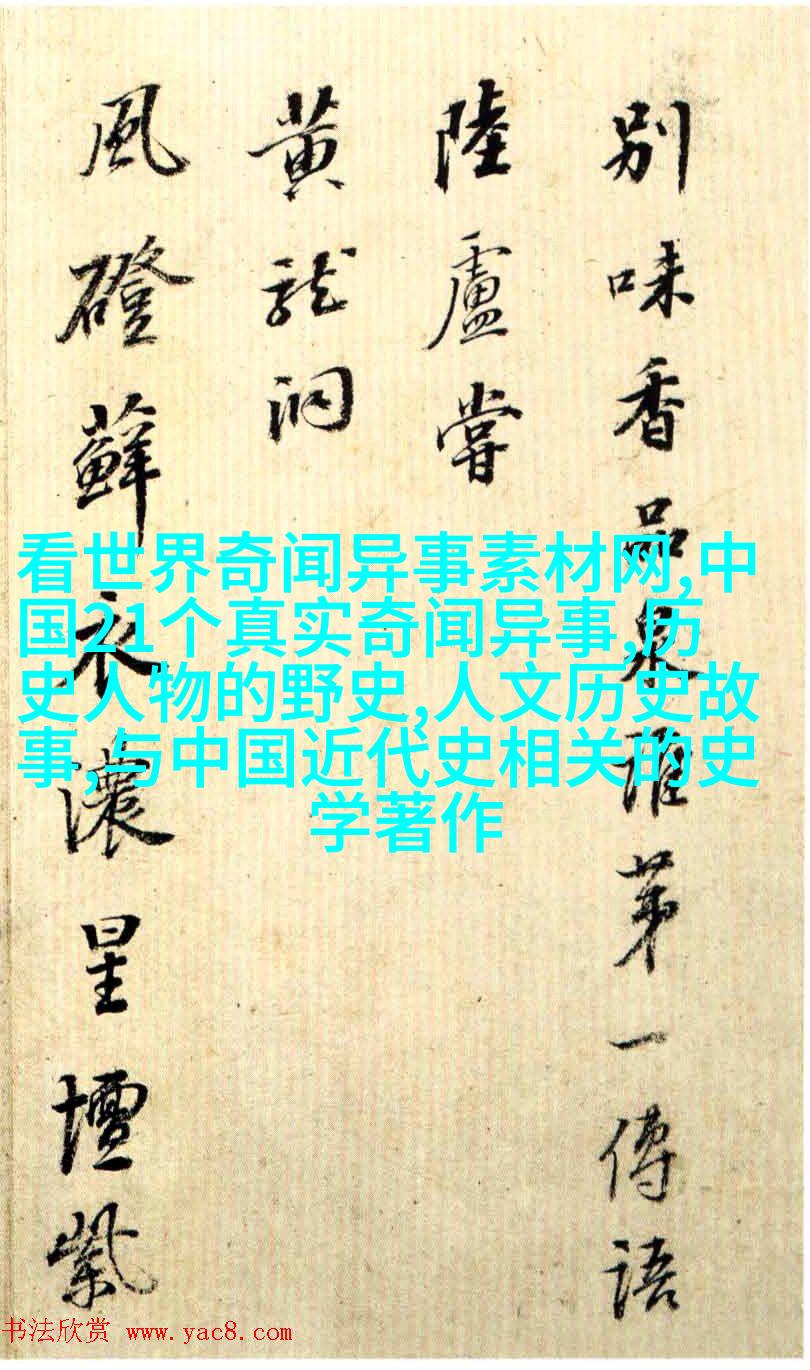 別味香品泉誰苐一傳語
陸盧嘗
黄龍洞
風磴蘚衣濃星壇紫
看世界奇闻异事素材网,中
国21个真实奇闻异事,历
史人物的野史,人文历史故
事,与中国近代史相关的史
学著作
书法欣赏 www.yac8.com